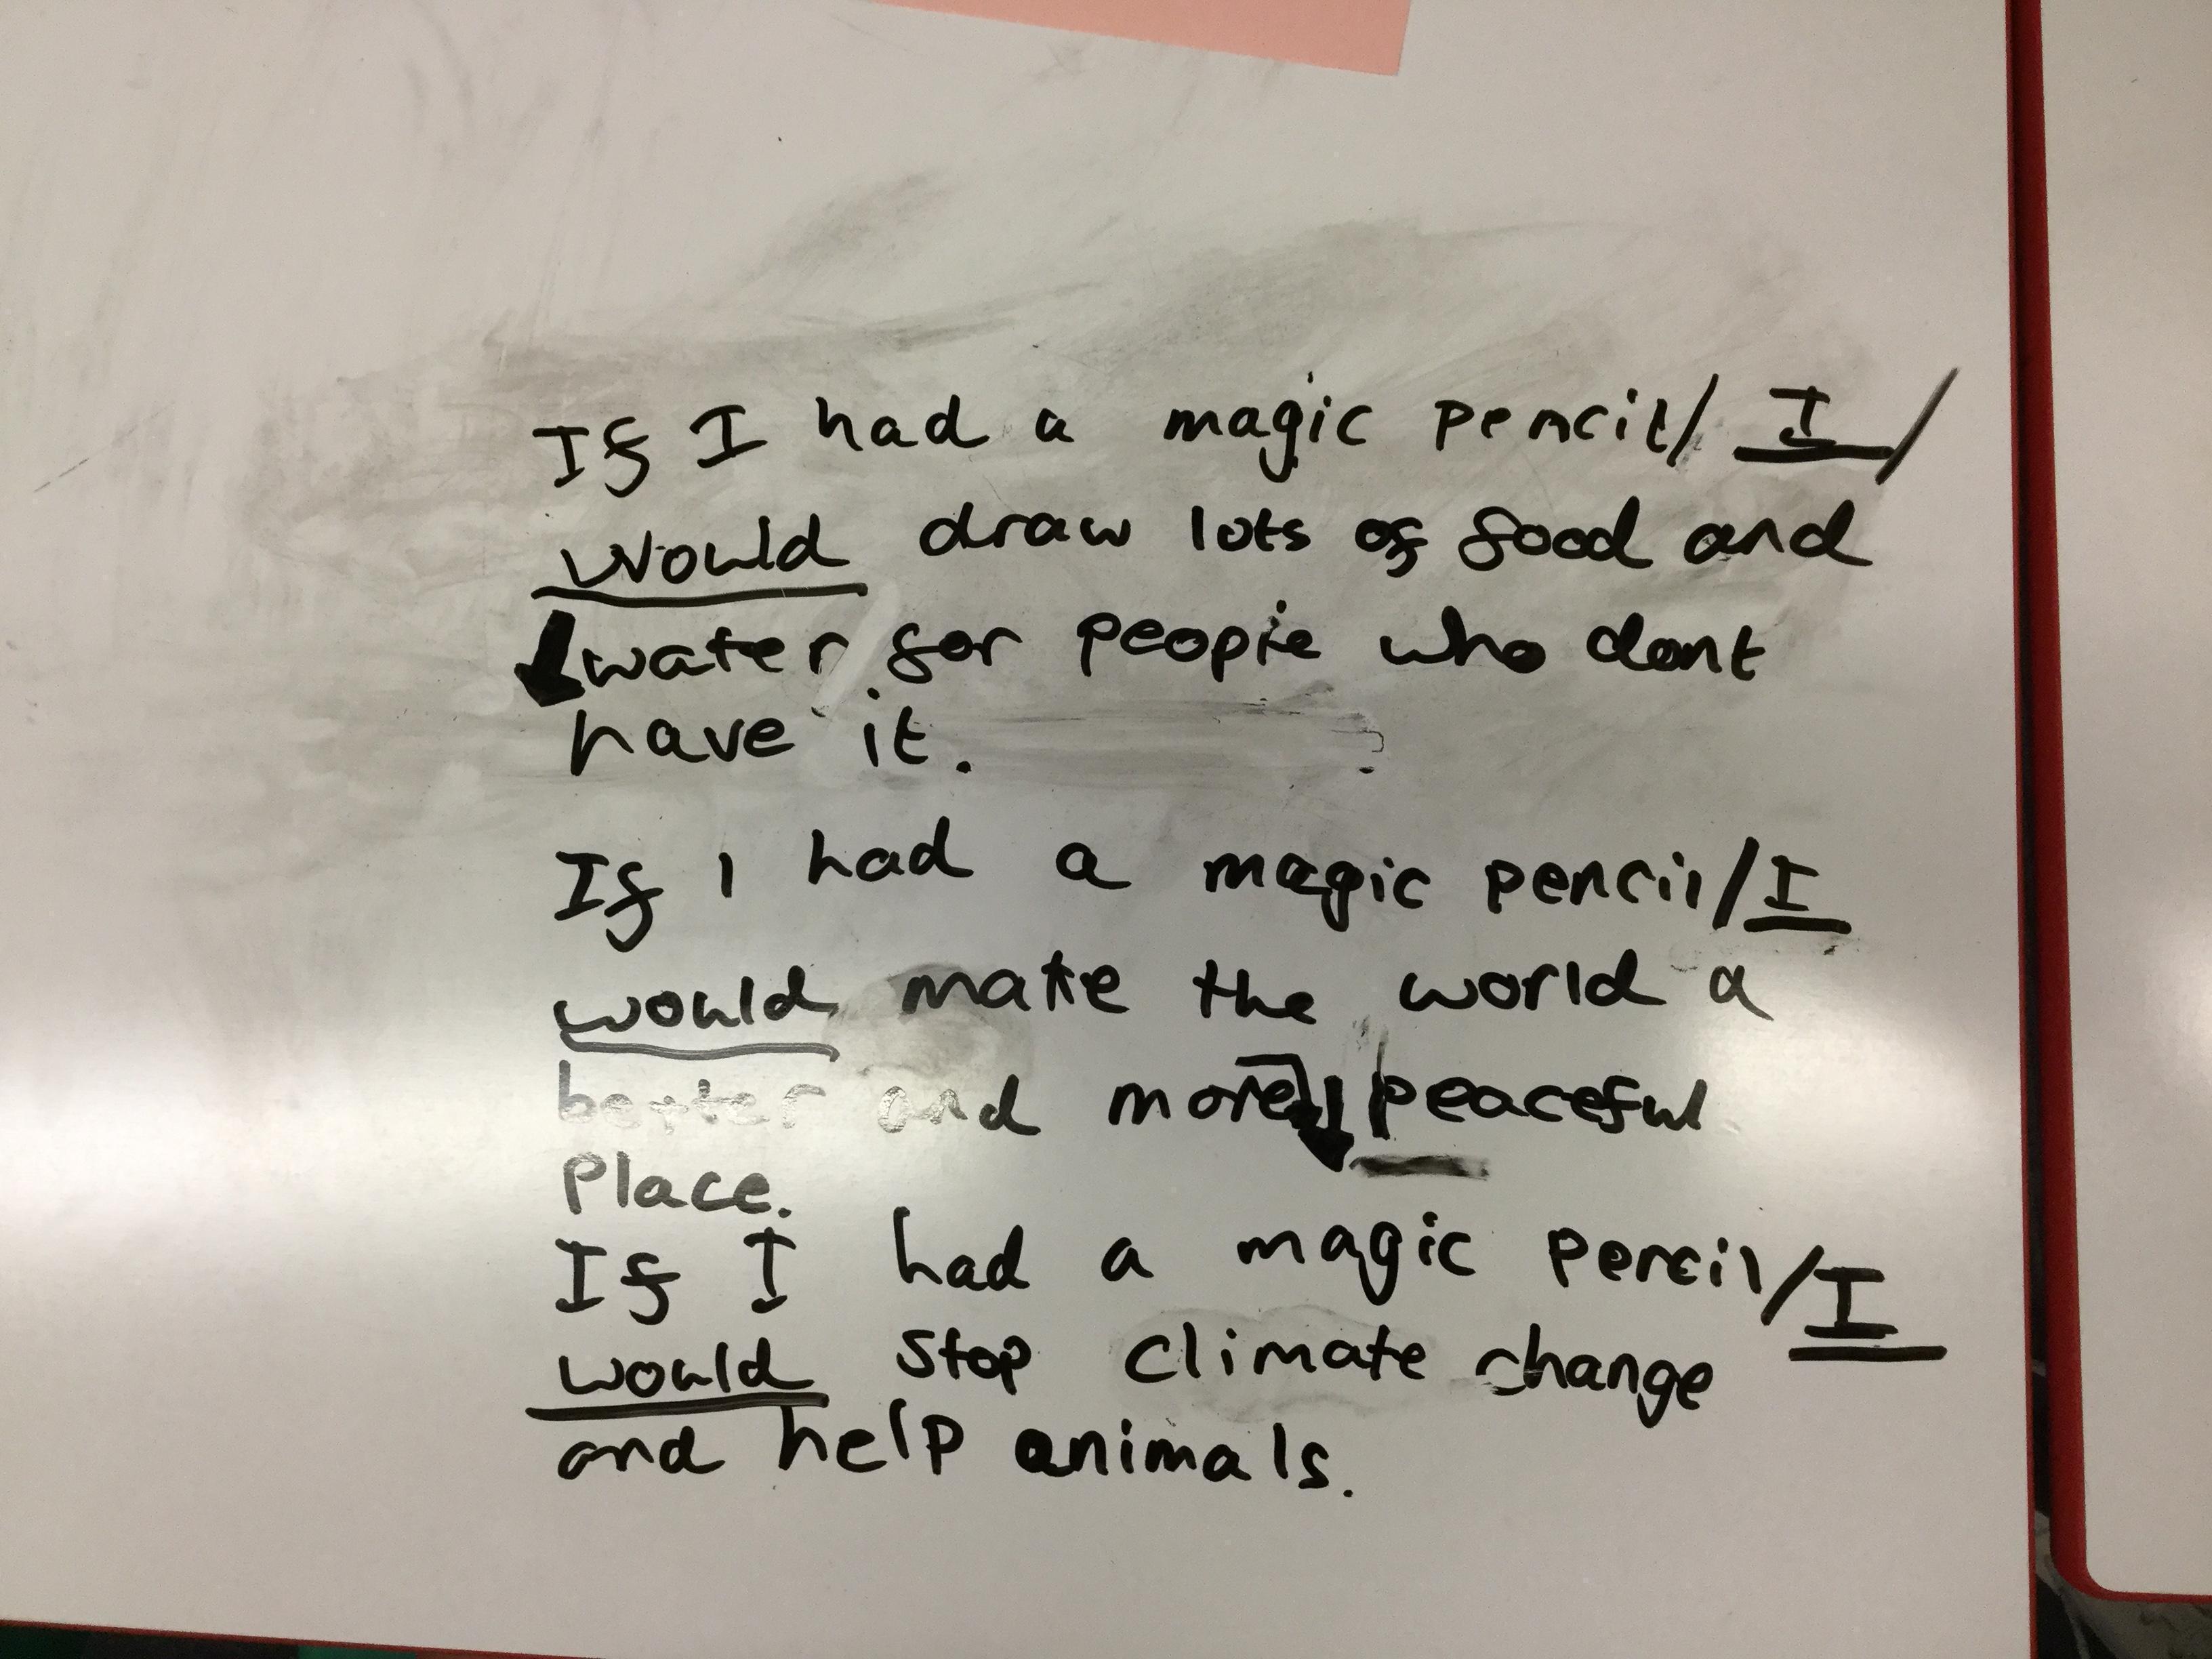 If I had a magic pencil/ I/
would draw lots of food and
water for people who dont
have it.
If I had a magic pencil/I
would make the world a
better and more peaceful
Place.
If I had a magic pencil/I
would stop climate change
and help animals.